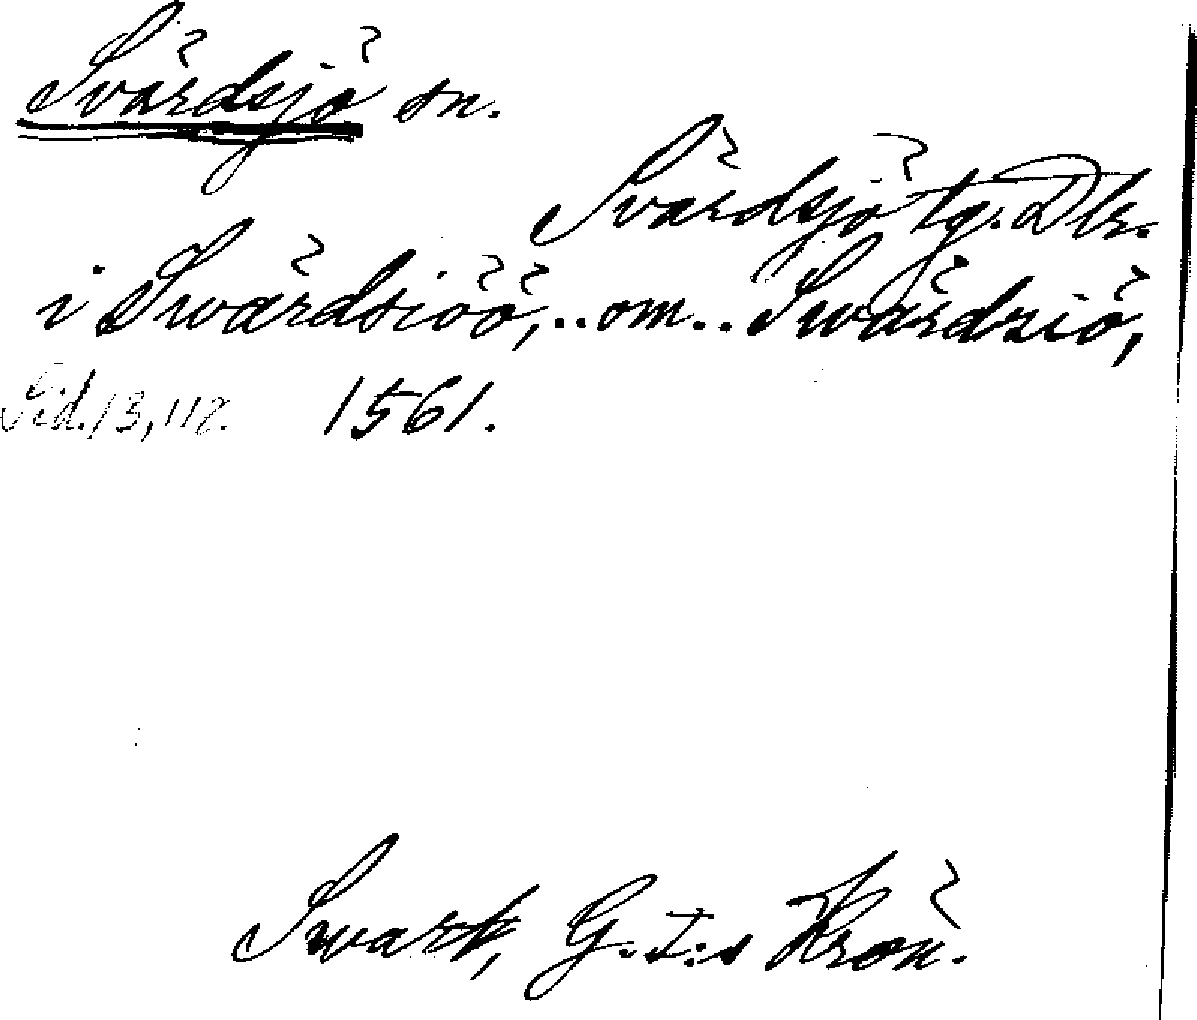 Svärdsjö sn.
Svärdsjö tg. Dlr.
i Swärdsiöö, .. om .. Swärdziö,
Sid. 13, 118. 1561.
Swart, G. I:s Krön.